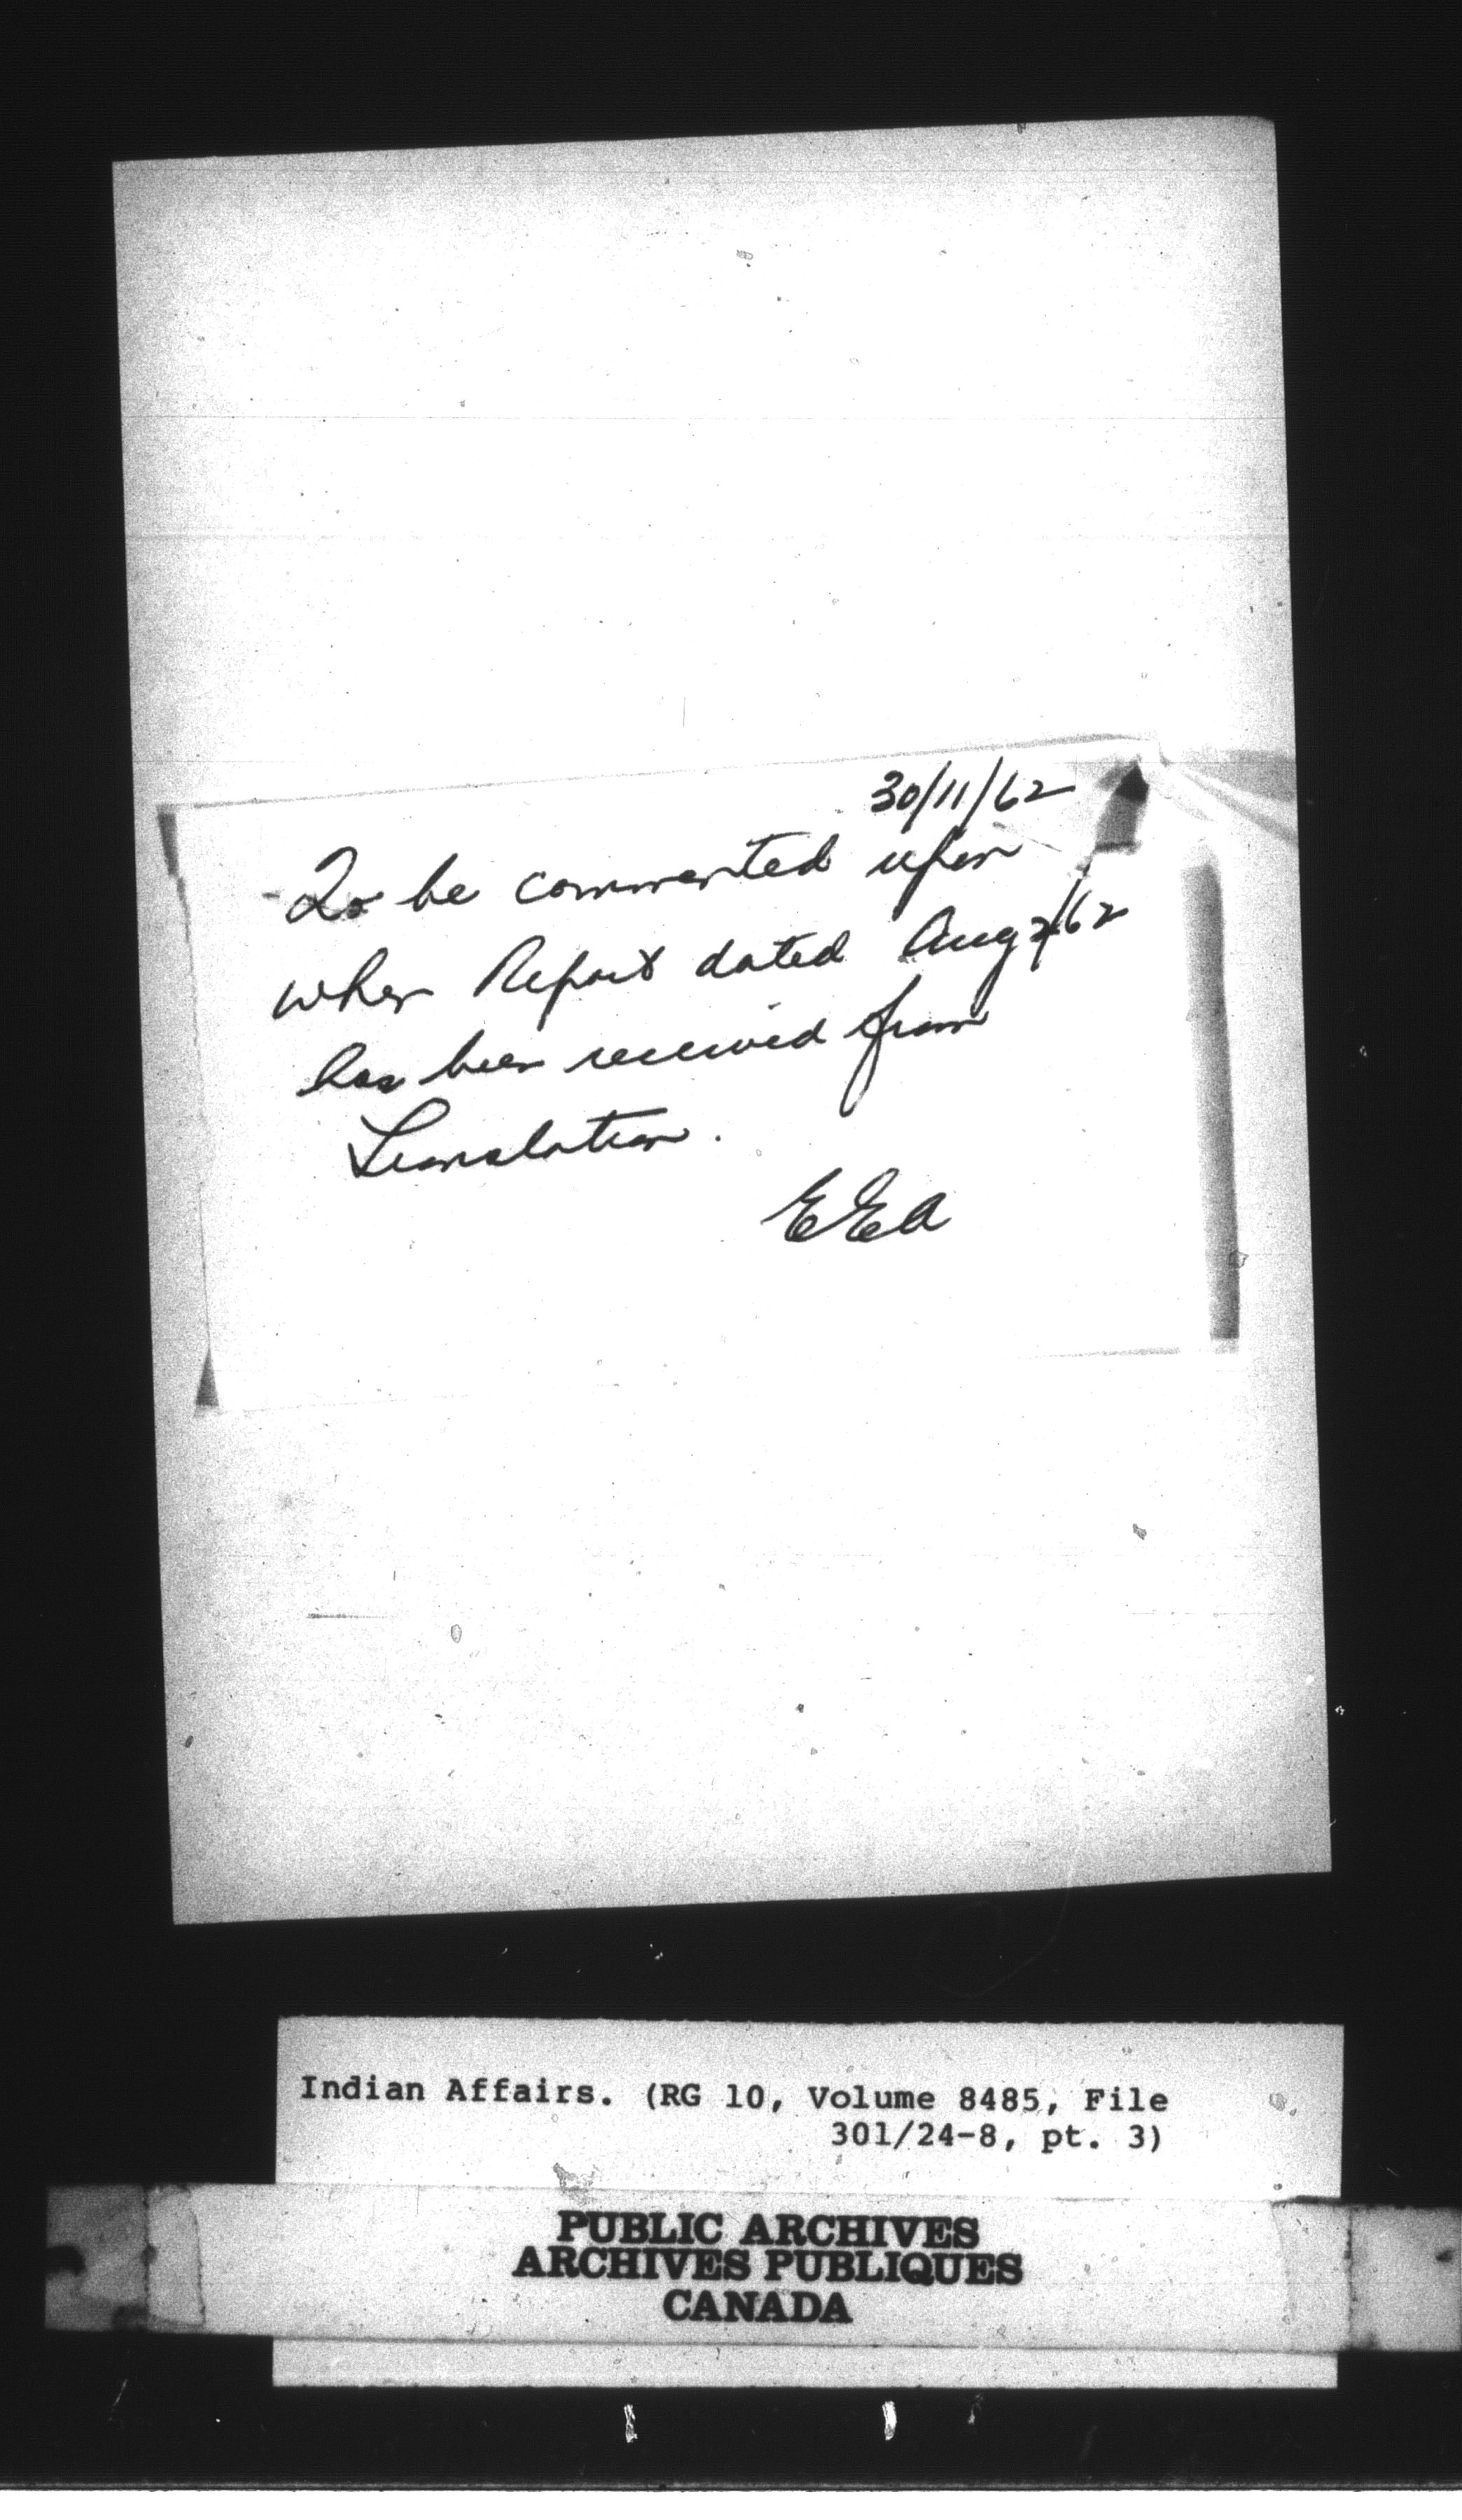 30/11/62
To be commented upon
when Report dated Aug 7/62
has been received from
Translation.
EEA
Indian Affairs. (RG 10, Volume 8485, File
301/24-8, pt. 3)
PUBLIC ARCHIVES
ARCHIVES PUBLIQUES
CANADA